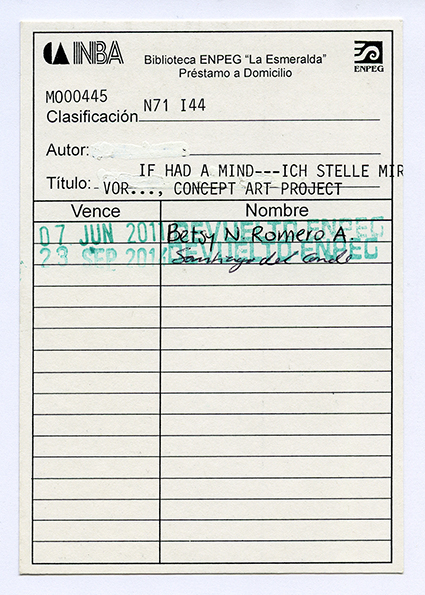 INBA
Biblioteca ENPEG "La Esmeralda"
Préstamo a Domicilio
ENPEG
M000445
Clasificación N71 I44
Autor:
IF HAD A MIND---ICH STELLE MIR
Título: VOR..., CONCEPT ART PROJECT
Vence Nombre
07 JUN 2011 DEVUELTO ENPEG
Betsy N. Romero A.
23 SEP 2014 DEVUELTO ENPEG
Santiago del Conde